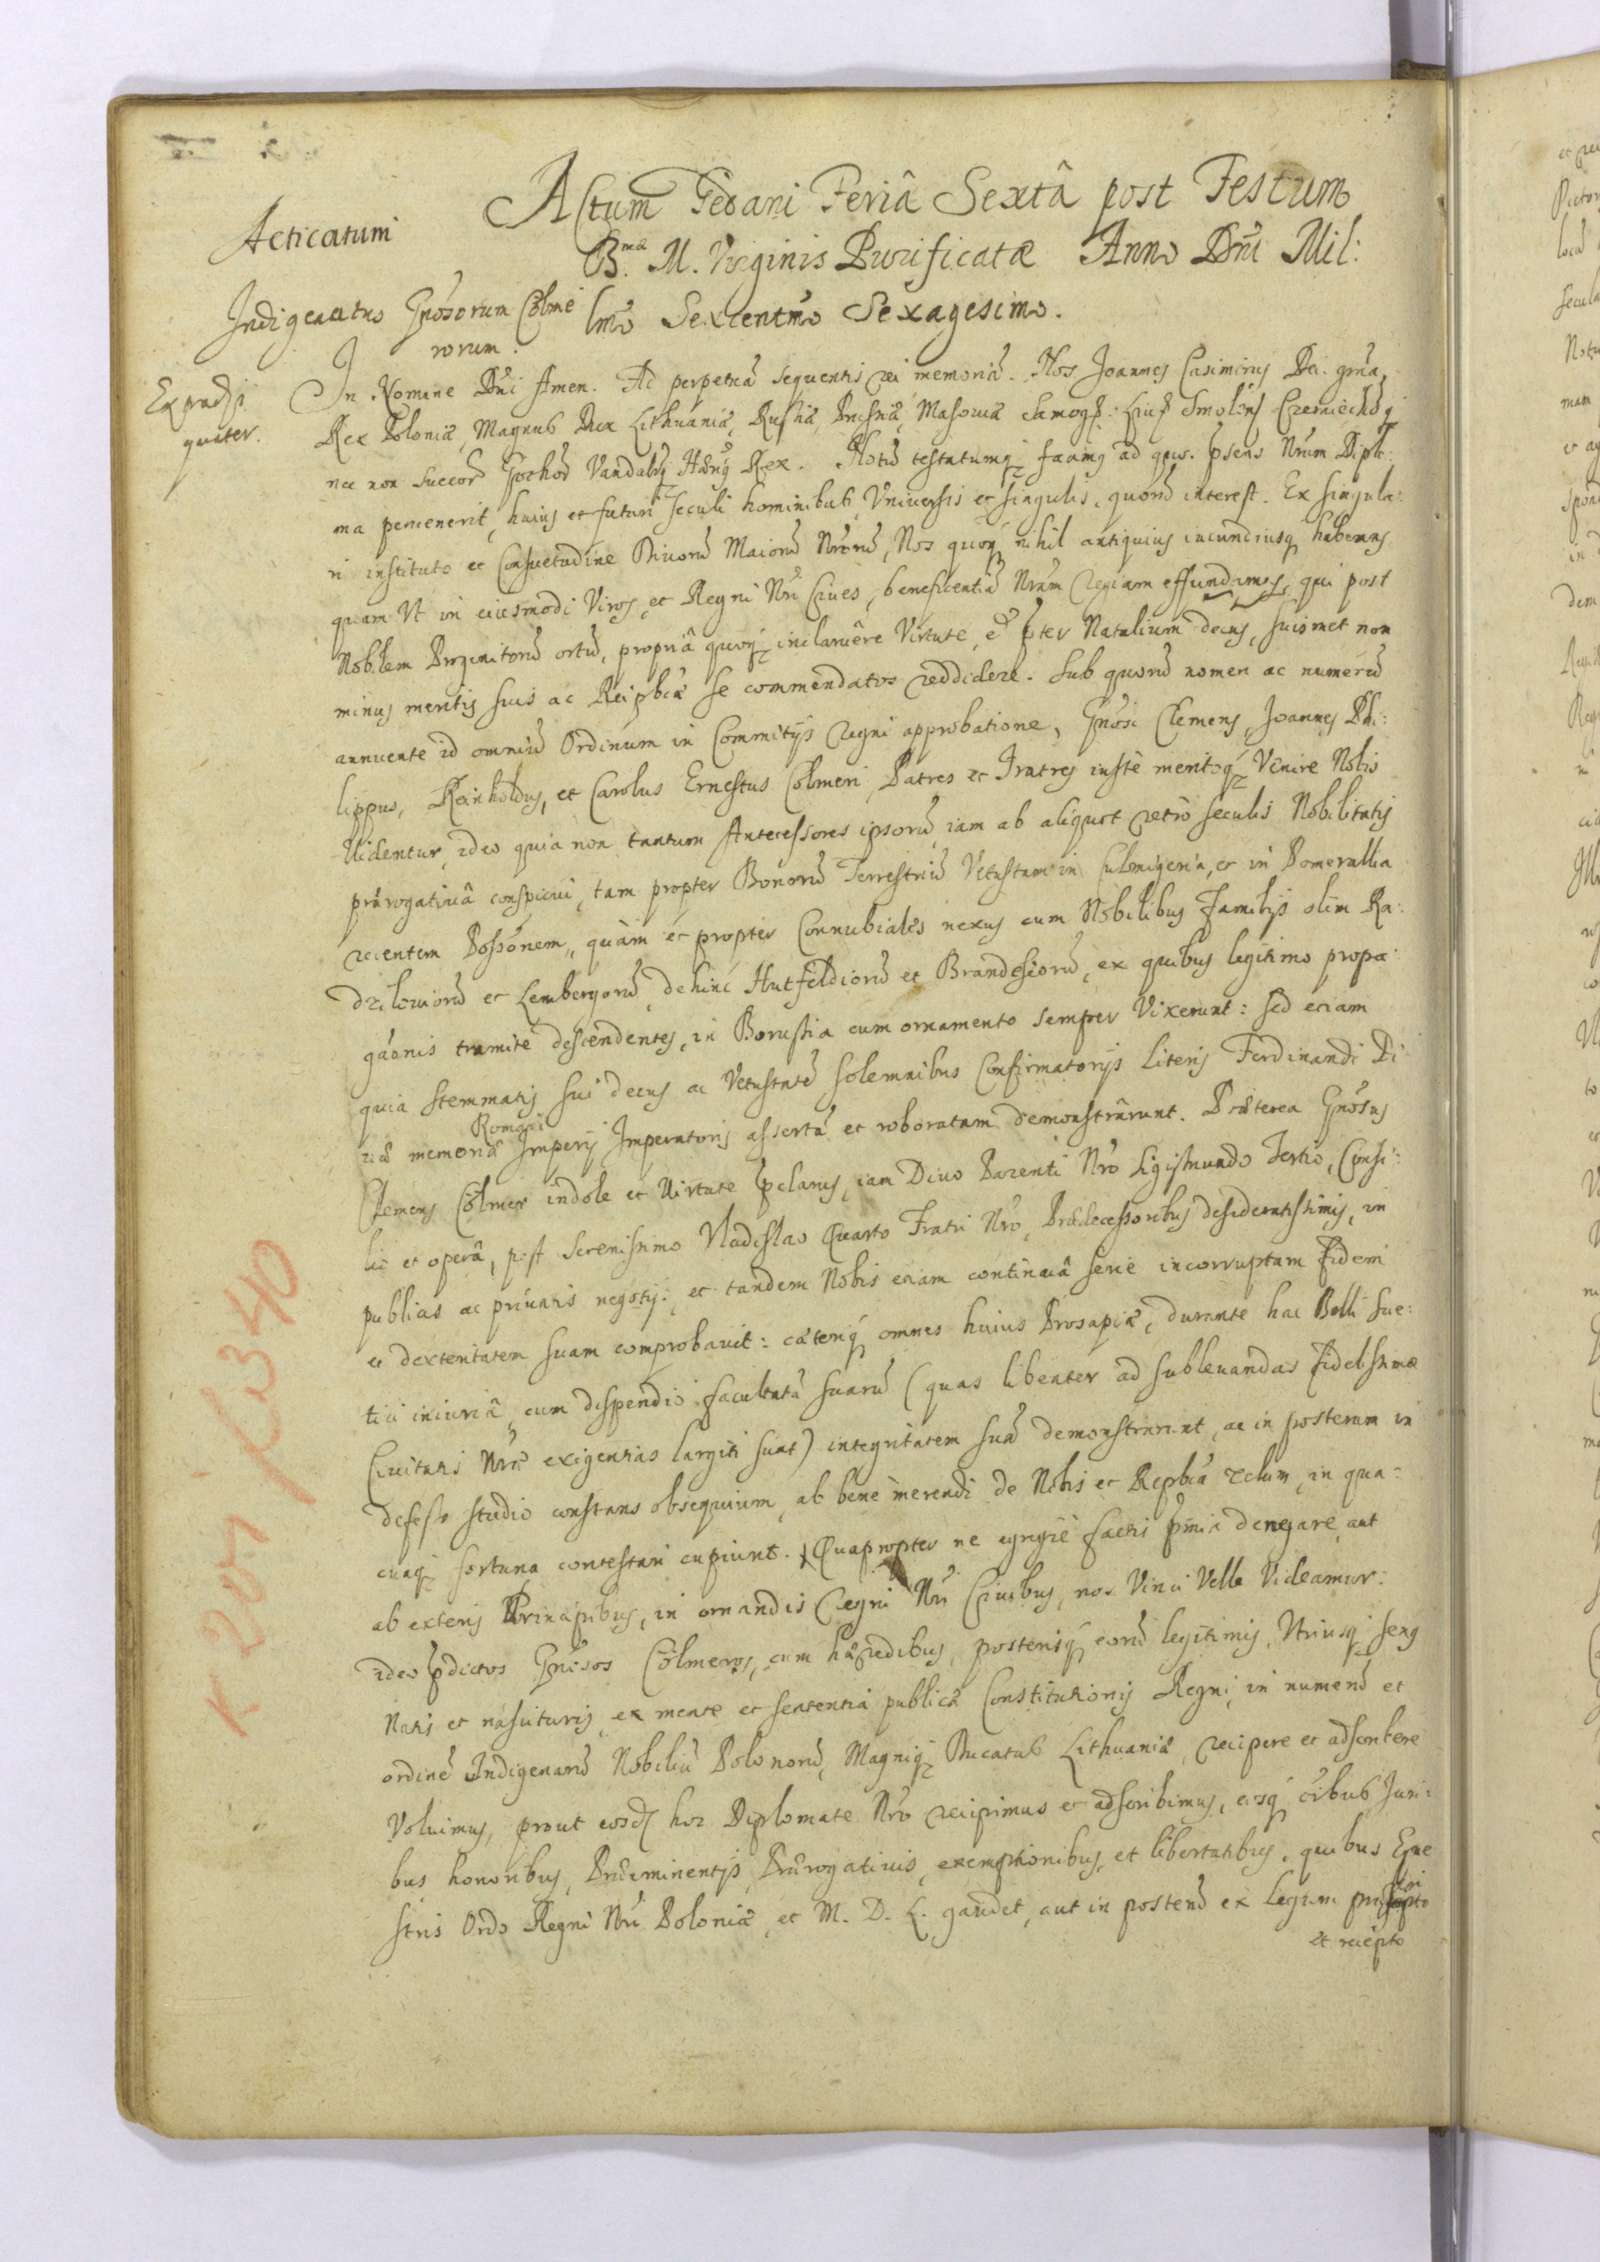 Actum Gedani Feriâ Sextâ post Festum
B.mæ M. Virginis Purificatæ Anno Dni Mil:
lmo Sexcentmo Sexagesimo.
Acticatum
Indigenatus Gnosorum Cölme
rorum.
In Nomine Dni Amen. Ad perpetuā sequentis rei memoriā. Nos Joannes Casimirus Dei grâ,
Rex Poloniæ, Magnus Dux Lithuaniæ, Russiæ, Prussiæ, Masoviæ Samog: Smolens Czerniechōq
nec non Suecor Gothor Vandalōq Rex. Notū testatumq facimq ad quos. psens Nrum Diplo:
ma pervenerit, huius et futuri seculi hominibus, Vniversis et singulis, quorū interest. Ex singula:
ri instituto et Consuetudine Divorū Maiorū Nrorū, Nos quoq nihil antiquius iucundiusq habemus
quam Vt in eiusmodi Viros, et Regni Nri Cives, beneficentiā Nram Regiam effundamus, qui post
Nobilem Progenitorū ortū, propriâ quoq inclaruêre Virtute, et pter Natalium decus, suismet non
minus meritis suis ac Reipbcæ se commendatos reddidere. Sub quorū nomen ac numerū
annuente id omniū Ordinum in Commitijs Regni approbatione, Gnosi Clemens, Joannes Phi:
lippus, Reinholdus, et Carolus Ernestus Cölmeri, Patres et Fratres iuste meritoq Venire Nobis
Videntur, ideo quia non tantum Antecessores ipsorū iam ab aliquot retrò seculis Nobilitatis
prærogativâ conspicui, tam propter Bonorū Terrestriū Vetustam in Culmigeria, et in Pomerallia
recentem Possonem, quàm et propter Connubiales nexus cum Nobilibus Familijs olim Ra:
dzilowiorū et Lembergorū, dehinc Hutfeldiorū et Brandesiorū, ex quibus legitimo propa:
gâonis tramite descendentes, in Borussia cum ornamento semper Vixerunt: sed etiam
quia stemmatis sui decus ac Vetustatē solemnibus Confirmatorijs Literis Ferdinandi Di:
væ memoriæ Romani Imperij Imperatoris assertā et roboratam demonstrârunt. Præterea Gnosus
Clemens Cölmer indole et Virtute pclarus, iam Divo Parenti Nro Sigismundo Tertio, Consi:
lio et operâ, post Serenissimo Vladislao Quarto Fratri Nro, Prædecessoribus desideratissimis, in
publicis ac privatis negotijs, et tandem Nobis etiam continuâ serie incorruptam Fidem
et dexteritatem suam comprobavit: cæteriq omnes huius Prosapiæ, durante hac Belli Sue:
tici iniuriâ, cum dispendio facultatū suarū (quas libenter ad sublevandas Fidelissimæ
Civitatis Nræ exigentias largiti sunt) integritatem suā demonstrarunt, ac in posterum in
defesso studio constans obsequium, ab bene merendi de Nobis et Repbcâ zelum, in qua:
cunq fortuna contestari cupiunt. Quapropter ne egregiè factis pmia denegare, aut
ab exteris Principibus, in ornandis Regni Nri Civibus, nos Vinci Velle Videamur:
ideo pdictos Gnosos Cölmeros, cum hæredibus, posterisq eorū legitimis, Vtriusq sexq
Natis et nascituris, ex mente et sententia publicæ Constitutionis Regni, in numerū et
ordinē Indigenarū Nobiliū Polonorū, Magniq Ducatus Lithuaniæ, recipere et adscribere
Voluimus, prout eosd hoc Diplomate Nro recipimus et adscribimus, eisq oībus Juri:
bus honoribus, Præeminentijs, Prærogativis, exemptionibus, et libertatibus, quibus Eque
stris Ordo Regni Nri Poloniæ, et M. D. L. gaudet, aut in posterū ex Legum
et recepto